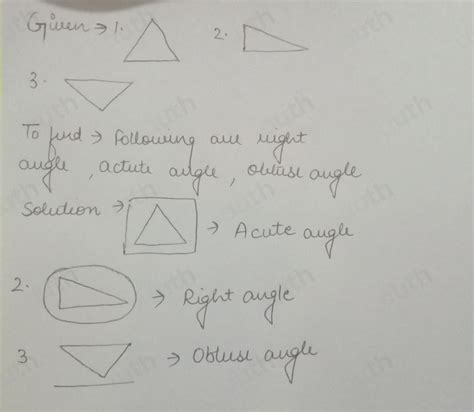 Given → 1. 2.
3.
To find → Following are right
angle, actute angle, obtuse angle
Solution → → Acute angle
2. → Right angle
3 → Obtuse angle